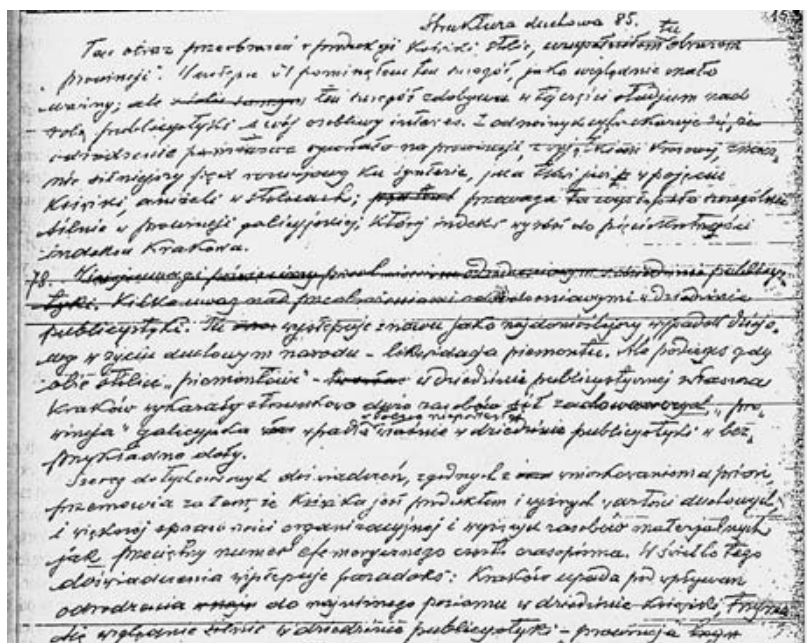 Struktura duchowa 85.
Ten obraz przeobrażeń produkcji książki stolic, uzupełniłem obrazem
prowincji. Wstępie pominąłem ten szczegół, jako względnie mało
ważny; ale ten szczegół zdobywa w tej części studjum nad
rolą publicystyki swój osobliwy interes. Z odnośnych cyfr okazuje się, że
odrodzenie państwowe na prowincji, z wyjątkiem
się rozwojowy ku jest w pojęciu
książki, aniżeli w stolicach; przewaga ta wystąpiła szczególnie
silnie w prowincji galicyjskiej, której indeks wyrósł do
indeksu Krakowa.
78. Kilka uwag nad przeobrażeniami w dziedzinie
publicystyki. Tu występuje znowu jako najdonioślejszy wypadek dziejo-
wy w życiu duchowym narodu – likwidacja piemontu. Ale podczas gdy
obie stolice „piemontowe" – w dziedzinie publicystycznej zwłaszcza
Kraków wykazały stosunkowo dużo zasobów sił „pro-
wincja" galicyjska wpadła właśnie w dziedzinie publicystyki w bez-
przykładne doły.
Szereg dotychczasowych doświadczeń, zgodnych z wnioskowaniem a priori,
przemawia za tem, że książka jest produktem i wyższych wartości duchowych,
i większej sprawności organizacyjnej i wyższych zasobów materjalnych
jak przeciętny numer efemerycznego często czasopisma. W świetle tego
doświadczenia występuje paradoks: Kraków upada pod wpływem
odrodzenia do najniższego poziomu w dziedzinie książki, trzyma
się względnie silnie w dziedzinie publicystyki – prowincja